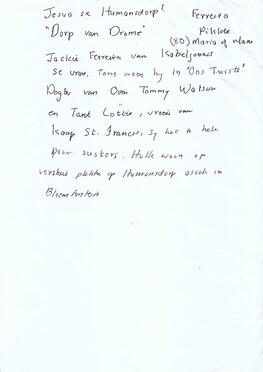 Jesus se Humansdorp! Ferreira
"Dorp van Drome" Pikslote
(80) Maria of
Jackie Ferreira van Kabeljouws
se vrou. Tans woon hy in 'Ons Tuiste'
Dogter van Oom Tommy Watson
en Tant Lottie, vroeër van
Kaap St. Francis. Sy het 'n hele
paar susters. Hulle woon op
verskeie plekke op Humansdorp asook in
Bloemfontein